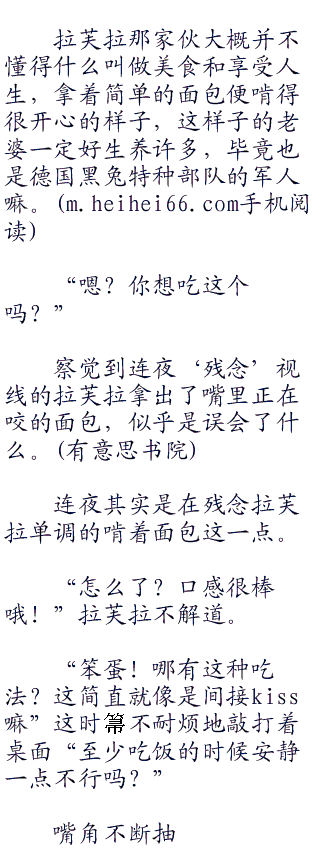 拉芙拉那家伙大概并不
懂得什么叫做美食和享受人
生，拿着简单的面包便啃得
很开心的样子，这样子的老
婆一定好生养许多，毕竟也
是德国黑兔特种部队的军人
嘛。(m.heihei66.com手机阅
读)
“嗯？你想吃这个
吗？”
察觉到连夜‘残念’视
线的拉芙拉拿出了嘴里正在
咬的面包，似乎是误会了什
么。(有意思书院)
连夜其实是在残念拉芙
拉单调的啃着面包这一点。
“怎么了？口感很棒
哦！”拉芙拉不解道。
“笨蛋！哪有这种吃
法？这简直就像是间接kiss
嘛”这时箒不耐烦地敲打着
桌面“至少吃饭的时候安静
一点不行吗？”
嘴角不断抽